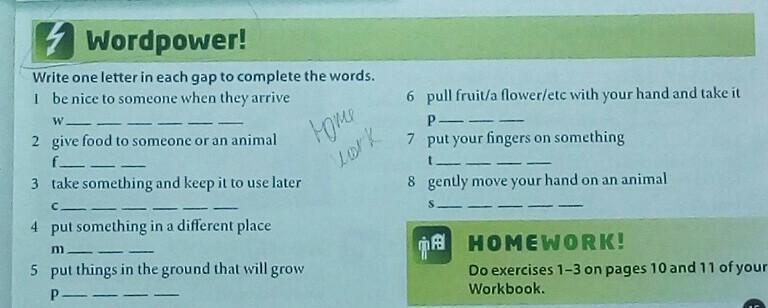 Wordpower!
Write one letter in each gap to complete the words.
1 be nice to someone when they arrive
w__ __ __ __ __ __
2 give food to someone or an animal
f__ __ __
3 take something and keep it to use later
c__ __ __ __ __ __
4 put something in a different place
m__ __ __
5 put things in the ground that will grow
p__ __ __ __
Home
work
6 pull fruit/a flower/etc with your hand and take it
p__ __ __
7 put your fingers on something
t__ __ __ __
8 gently move your hand on an animal
s__ __ __ __ __
HOMEWORK!
Do exercises 1–3 on pages 10 and 11 of your
Workbook.